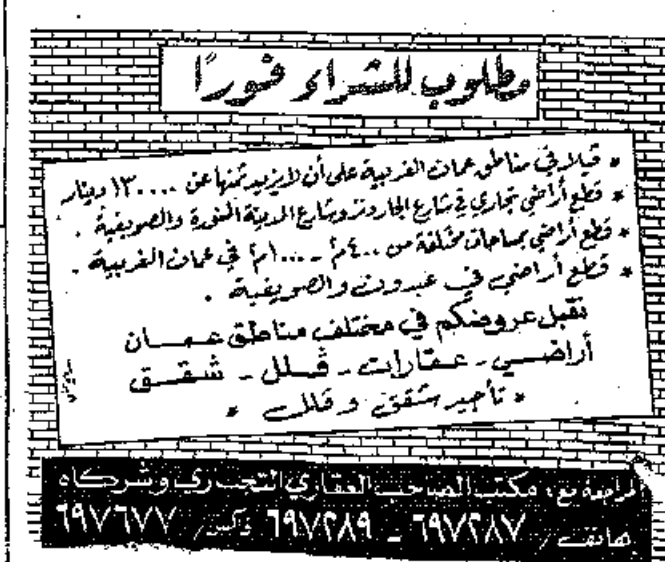 مطلوب للشراء فورًا
* فيلا في مناطق عمان الغربية على أن لا يزيد ثمنها عن ١٣٠٠٠٠ دينار
* قطع أراضي تجاري في شارع الجاردنز وشارع المدينة المنورة والصويفية .
* قطع أراضي بمساحات مختلفة من ٤٠٠م - ١٠٠٠م في عمان الغربية .
* قطع أراضي في عبدون والصويفية .
نقبل عروضكم في مختلف مناطق عمان
أراضي - عقارات - فلل - شقق
* تأجير شقق وفلل *
المراجعة مع : مكتب الصاحب العقاري التجاري وشركاه
هاتف / ٦٩٧٢٨٧ - ٦٩٧٢٨٩ فاكس / ٦٩٧٦٧٧